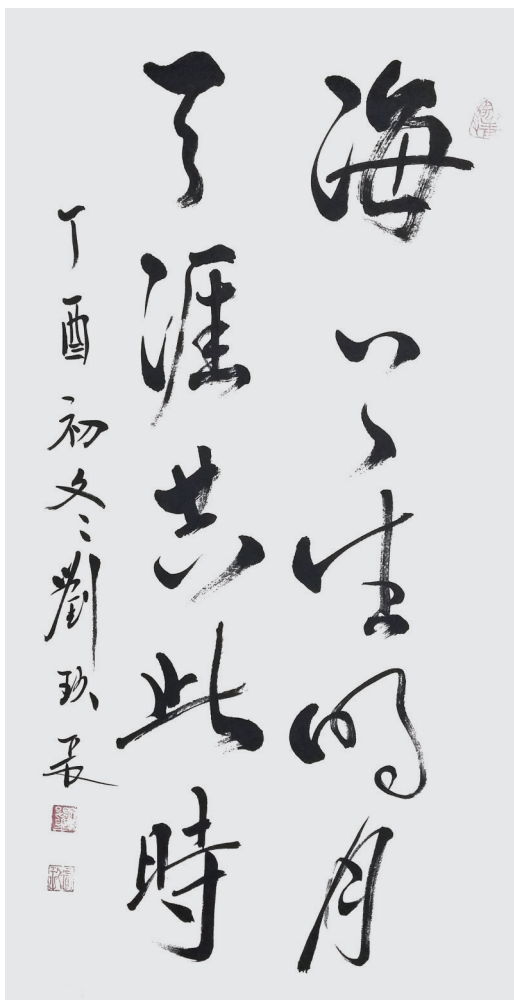 海上生明月
天涯共此時
丁酉初冬劉玖